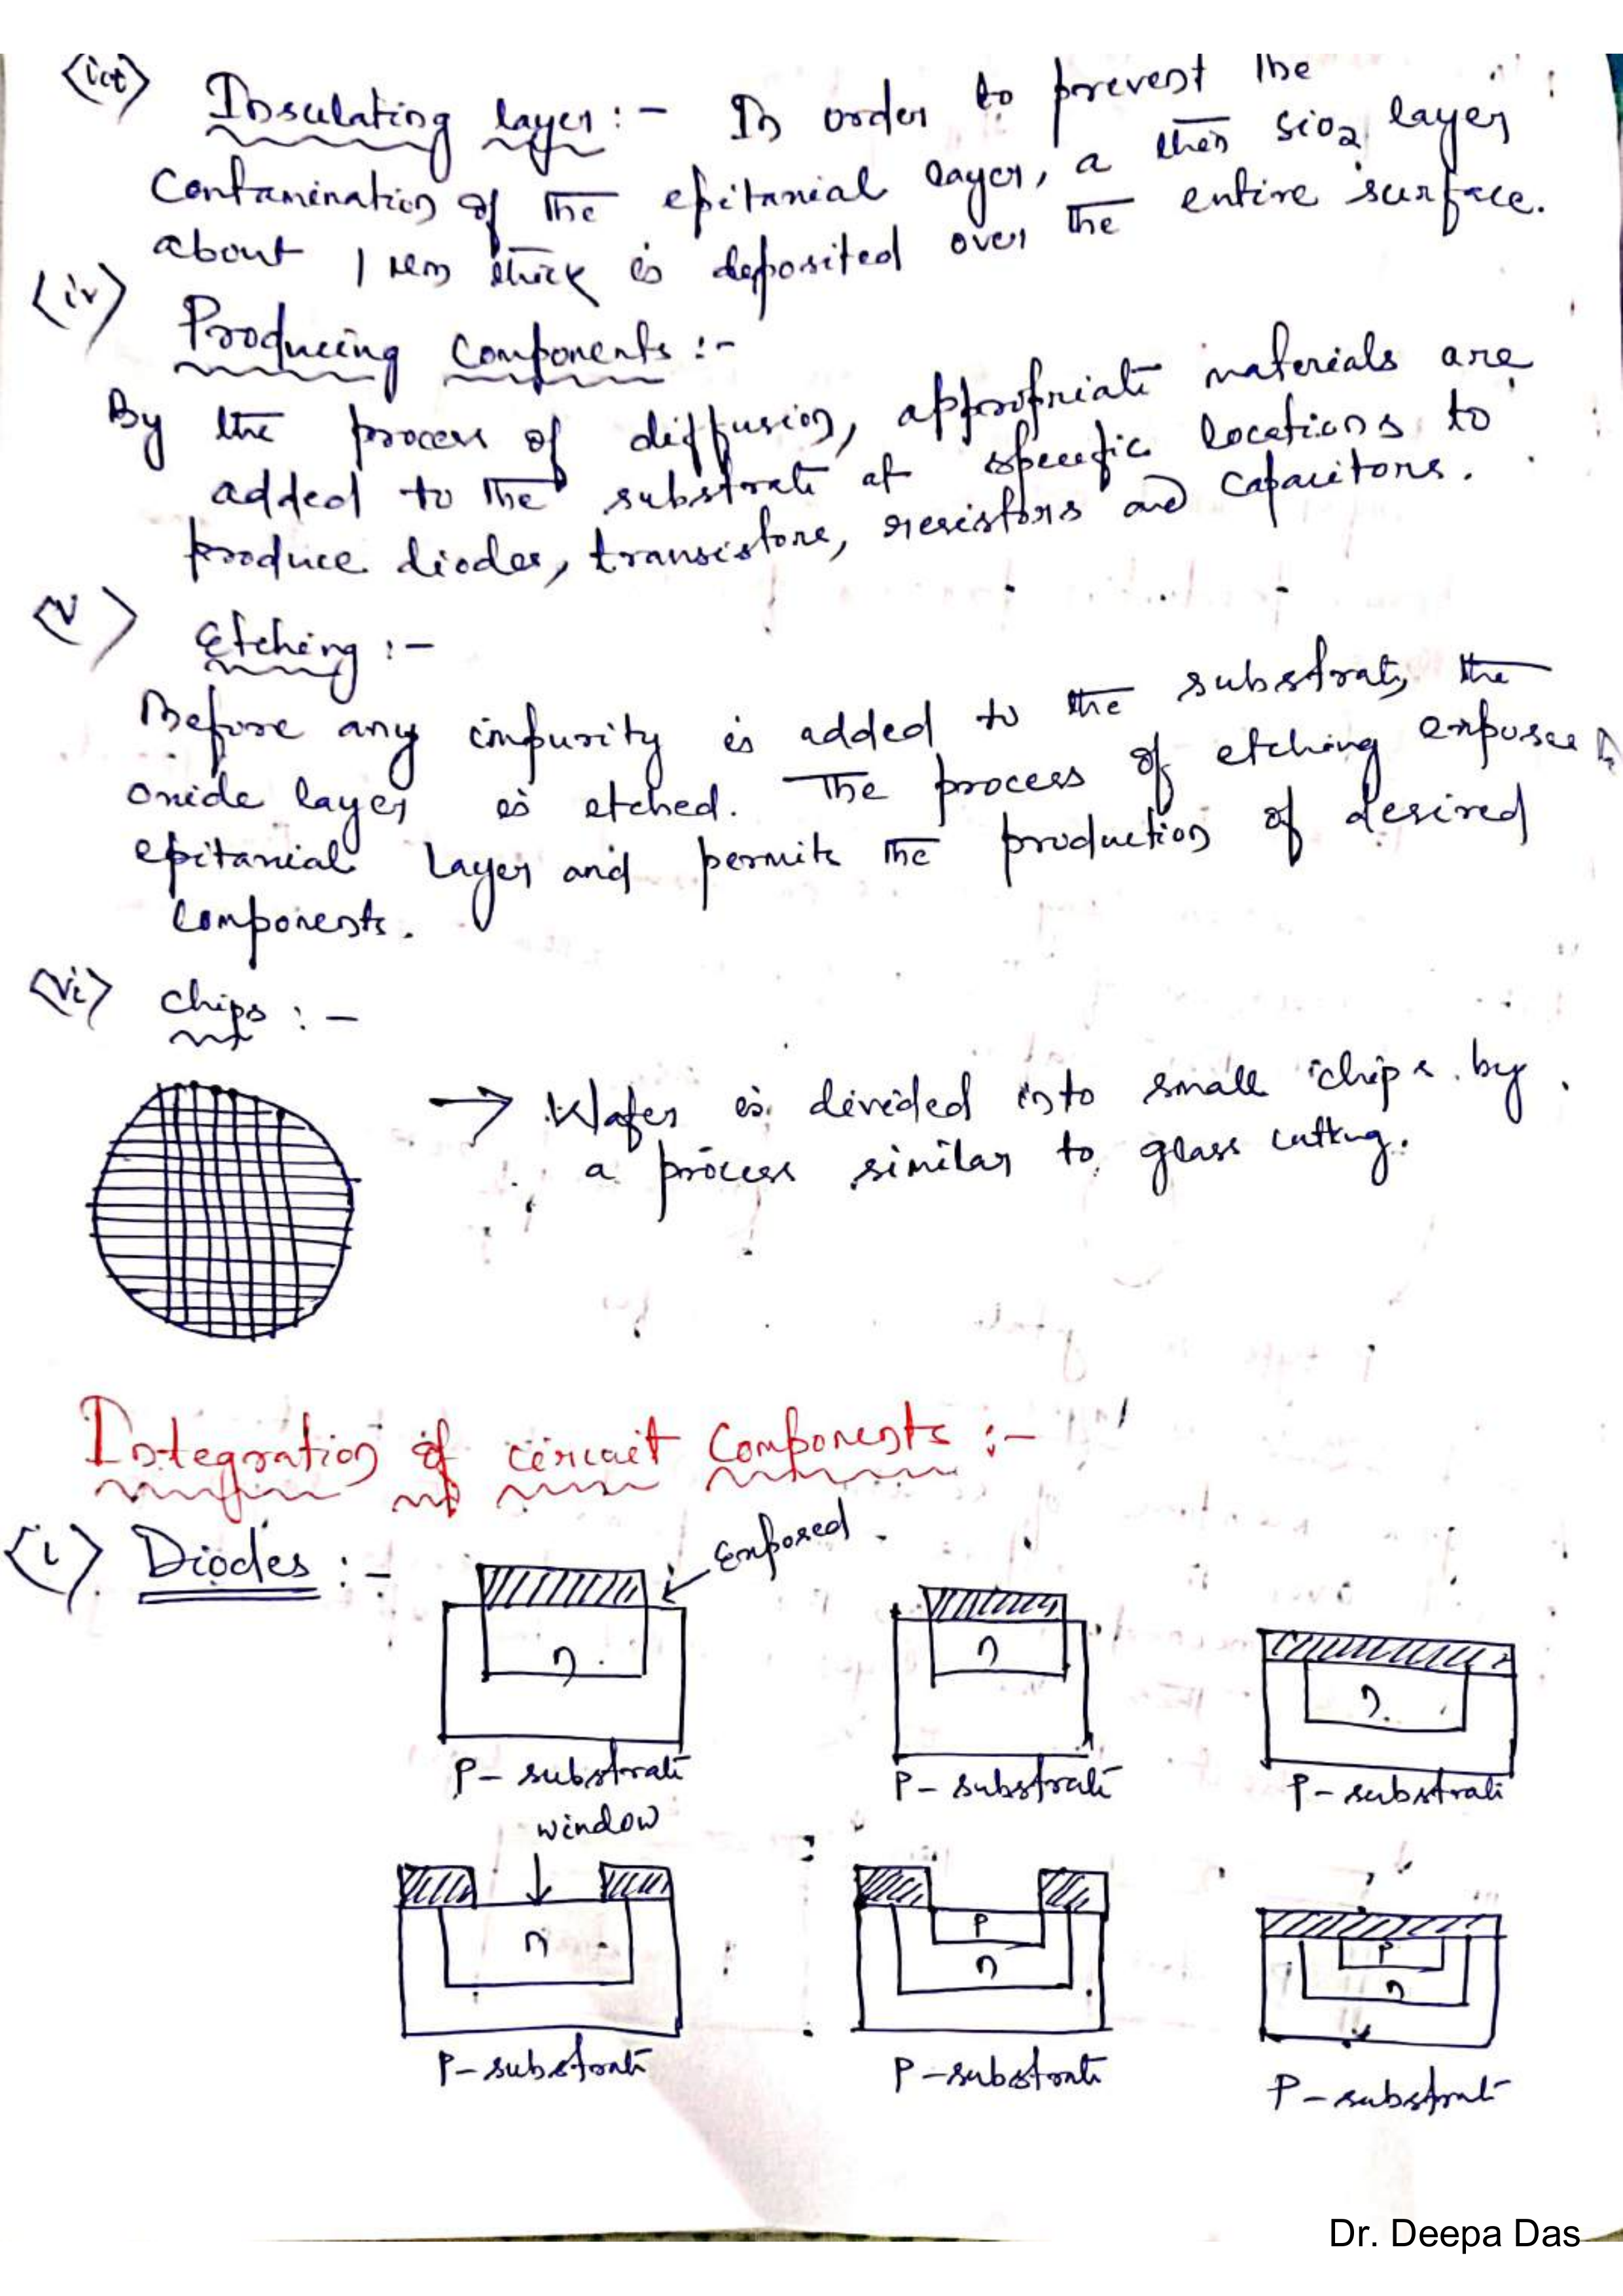 (iii) Insulating layer :- In order to prevent the
contamination of the epitaxial layer, a thin SiO2 layer
about 1 μm thick is deposited over the entire surface.
(iv) Producing components :-
By the process of diffusion, appropriate materials are
added to the substrate at specific locations to
produce diodes, transistors, resistors and capacitors.
(v) Etching :-
Before any impurity is added to the substrate, the
oxide layer is etched. The process of etching exposes
epitaxial layer and permits the production of desired
components.
(vi) chips :-
→ Wafer is divided into small chips by
a process similar to glass cutting.
Integration of circuit components :-
(i) Diodes :-
exposed
n
n
n
P- substrate
P- substrate
P- substrate
window
n
P
n
P
n
P-substrate
P-substrate
P-substrate
Dr. Deepa Das